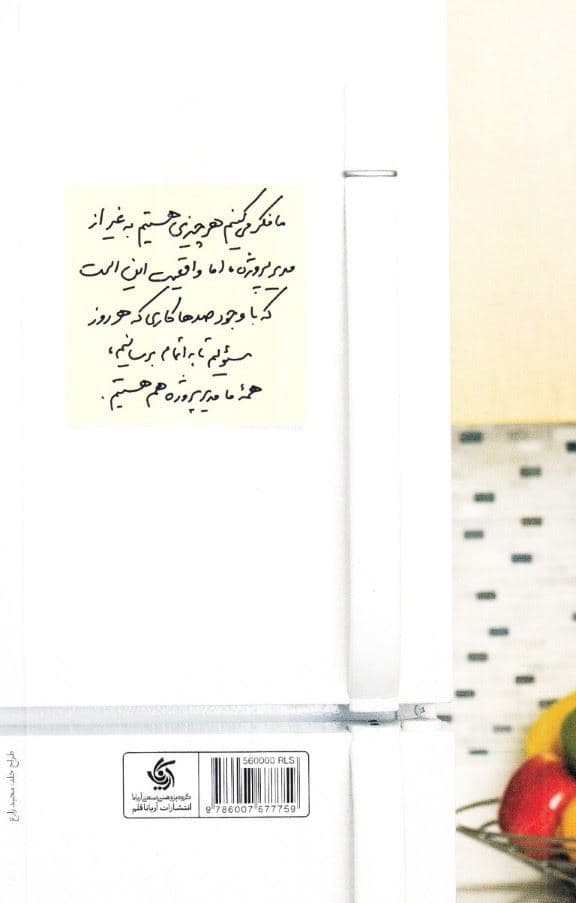 ما فکر می‌کنیم هر چیزی هستیم به غیر از
مدیر پروژه، اما واقعیت این است
که با وجود صدها کاری که هر روز
مسئولیم تا به اتمام برسانیم،
همهٔ ما مدیر پروژه هم هستیم.
560000 RLS
9 786007 677759
آریانا
گروه پژوهشی صنعتی آریانا
انتشارات آریانا قلم
طراح جلد: مجید زارع